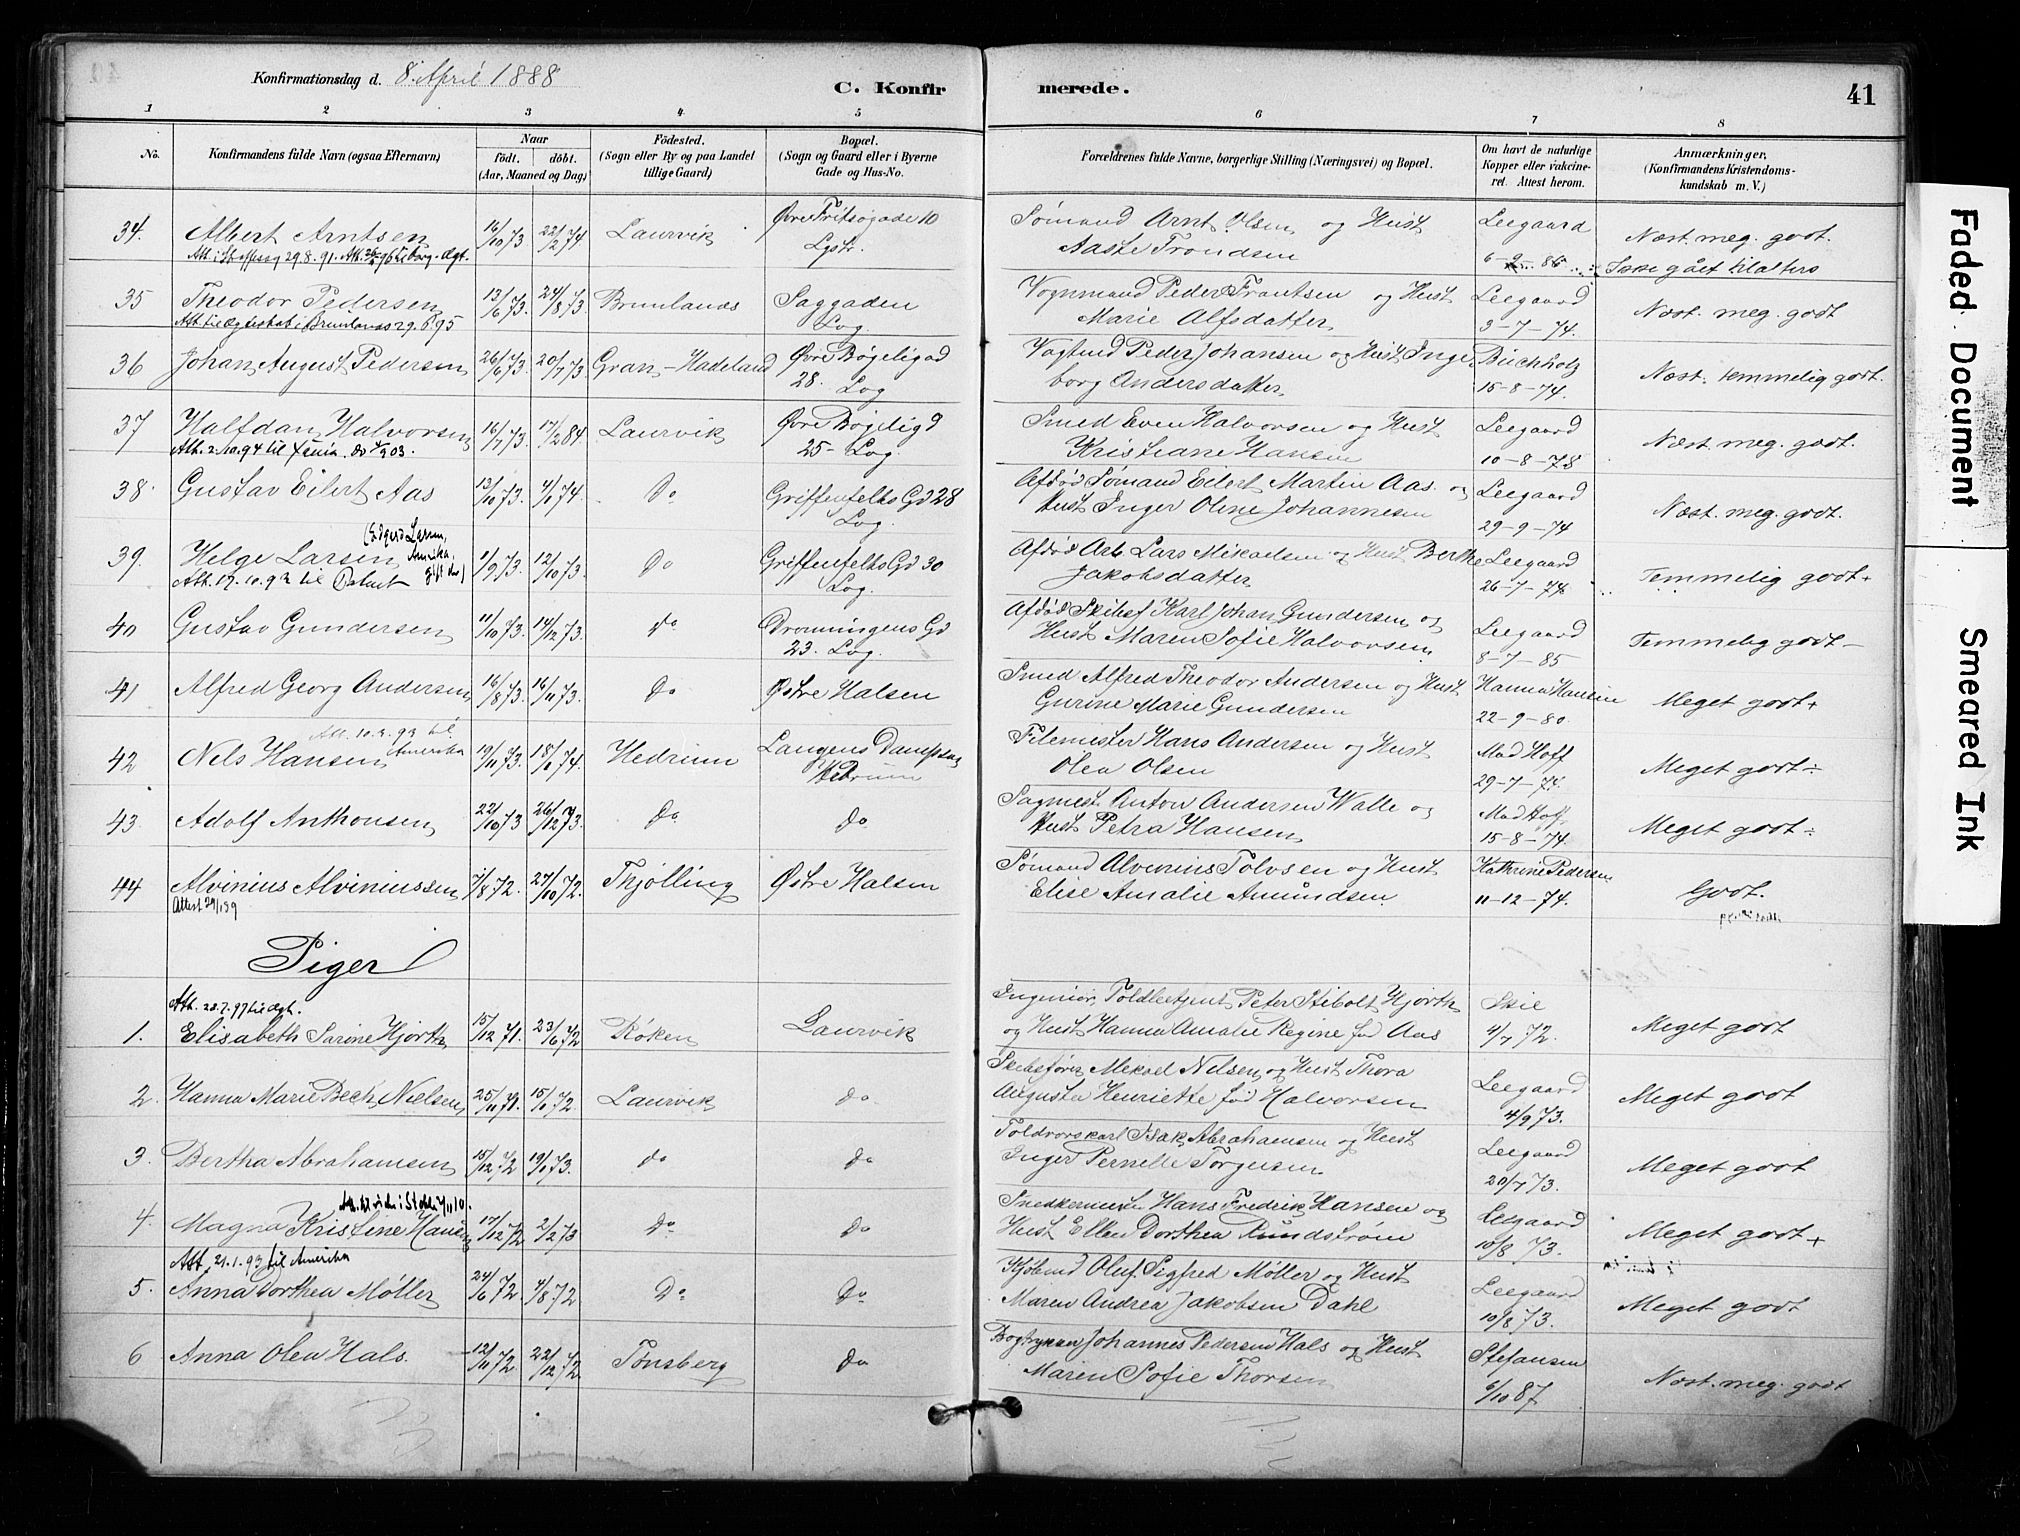 Konfirmationsdag d. 8. April 1888
C. Konfirmerede.
41
1 2 3 4 5 6 7 8
No.
Konfirmandens fulde Navn (ogsaa Efternavn)
Naar født. døbt. (Aar, Maaned og Dag)
Fødested. (Sogn eller By og paa Landet tillige Gaard)
Bopæl. (Sogn og Gaard eller i Byerne Gade og Hus-No.
Forældrenes fulde Navne, borgerlige Stilling (Næringsvei) og Bopæl.
Om havt de naturlige Kopper eller vakcineret. Attest herom.
Anmærkninger, (Konfirmandens Kristendomskundskab m. V.)
34. Albert Arntsen 16/10 73 22/2 74 Laurvik Øvre Fritsøgade 10 Sømand Arnt Olsen og Hust Aaste Trondsen Leegaard Næst. meg. godt.
35 Theodor Pedersen 13/6 73. 24/8 73. Brunlanæs Saggaden Log. Vognmand Peder Frantsen og Hust Marie Alfsdatter Leegaard 3-7-74. Næst. meg. godt
Att. til Ægteskab i Brunlanæs 29.6.95
36 Johan August Pedersen 26/6 73. 20/7 73. Gran-Hadeland Øvre Bøgeligad 28. Log Vogtmd Peder Johansen og Hust Ingeborg Andersdatter Buchholz 15-8-74. Næst. temmelig godt.
37 Halfdan Halvorsen 16/7 73. 17/2 84. Laurvik Øvre Bøgeligd 25- Log. Smed Even Halvorsen og Hust Kristiane Hansen Leegaard 10-8-78 Næst. meg. godt.
38 Gustav Eilert Aas 13/10 73. 4/1 74. Do Griffenfelts Gd 28 Log. Afdød Sømand Eilert Martin Aas og Hust Inger Oline Johannesen Leegaard 29-9-74 Næst. meg. godt.
39. Helge Larsen 1/9 73. 12/10 73. Do Griffenfelts Gd 30 Log. Afdød Arb. Lars Mikaelsen og Hust Berthe Jakobsdatter Leegaard 26-7-74 Temmelig godt+
40 Gustav Gundersen 11/10 73. 14/12 73. do Dronningens Gd 23. Log. Afdød Skibsf Karl Johan Gundersen og Hust Maren Sofie Halvorsen Leegaard 8-7-85 Temmelig godt-
41 Alfred Georg Andersen 16/8 73. 16/11 73. Do Østre Halsen Smed Alfred Theodor Andersen og Hust Gurine Marie Gundersen Hanna Hansen 22-9-80. Meget godt+
Att. 10.3.93 til Amerika
42 Nels Hansen 19/11 73. 18/1 74. Hedrum Langens Dampsag Hedrum Filemester Hans Andersen og Hust Olea Olsen Mad Hoff 29-7-74. Meget godt÷
43. Adolf Anthonsen 22/10 73 26/12 73. Do do Sagmest. Anton Andersen Walle og Hust Petra Hansen Mad Hoff 15-8-74. Meget godt÷
44 Alvinius Alviniussen 7/8 72. 27/10 72. Thjølling Østre Halsen Sømand Alvinius Tolvsen og Hust Elise Amalie Amundsen. Kathrine Pedersen 11-12-74. Godt.
Piger
Att. 28.7.97 til Ægt.
1. Elisabeth Sarine Hjorth 15/12 71. 23/6 72 Røken Laurvik Ingeniør, Toldbetjent Peter Stibolt Hjorth og Hust Hanna Amalie Regine fød Aas Skie 4/7 72. Meget godt
2. Hanna Marie Bech Nielsen 25/11 71. 15/1 72. Laurvik do Skibsfører Mikael Nilsen og Hust Thora Augusta Henriette fød Halvorsen Leegaard 4/9 73. Meget godt
3. Bertha Abrahamsen 15/12 72 19/1 73. do do Toldvorskarl Isak Abrahamsen og Hust Inger Pernelle Torgersen Leegaard 20/7 73. Meget godt
4. Magna Kristine Hansen 17/12 72 2/2 73 Do Do Snedkermester Hans Fredrik Hansen og Hust Ellen Dorthea Rundstrøm Leegaard 10/8 73. Meget godt+
Att. 21.1.93 til Amerika
5. Anna Dorthea Møller 24/6 72 4/8 72 Do Do Kjøbmd Oluf Sigfred Møller og Hust Maren Andrea Jakobsen Dahl Leegaard 10/8 73. Meget godt
6 Anna Olea Hals. 12/11 72 22/12 72 Tønsberg do Johannes Pedersen Hals og Hust Maren Sofie Thorsen Stefansen 6/10 87 Næst. meg. godt
Faded Document
Smeared Ink